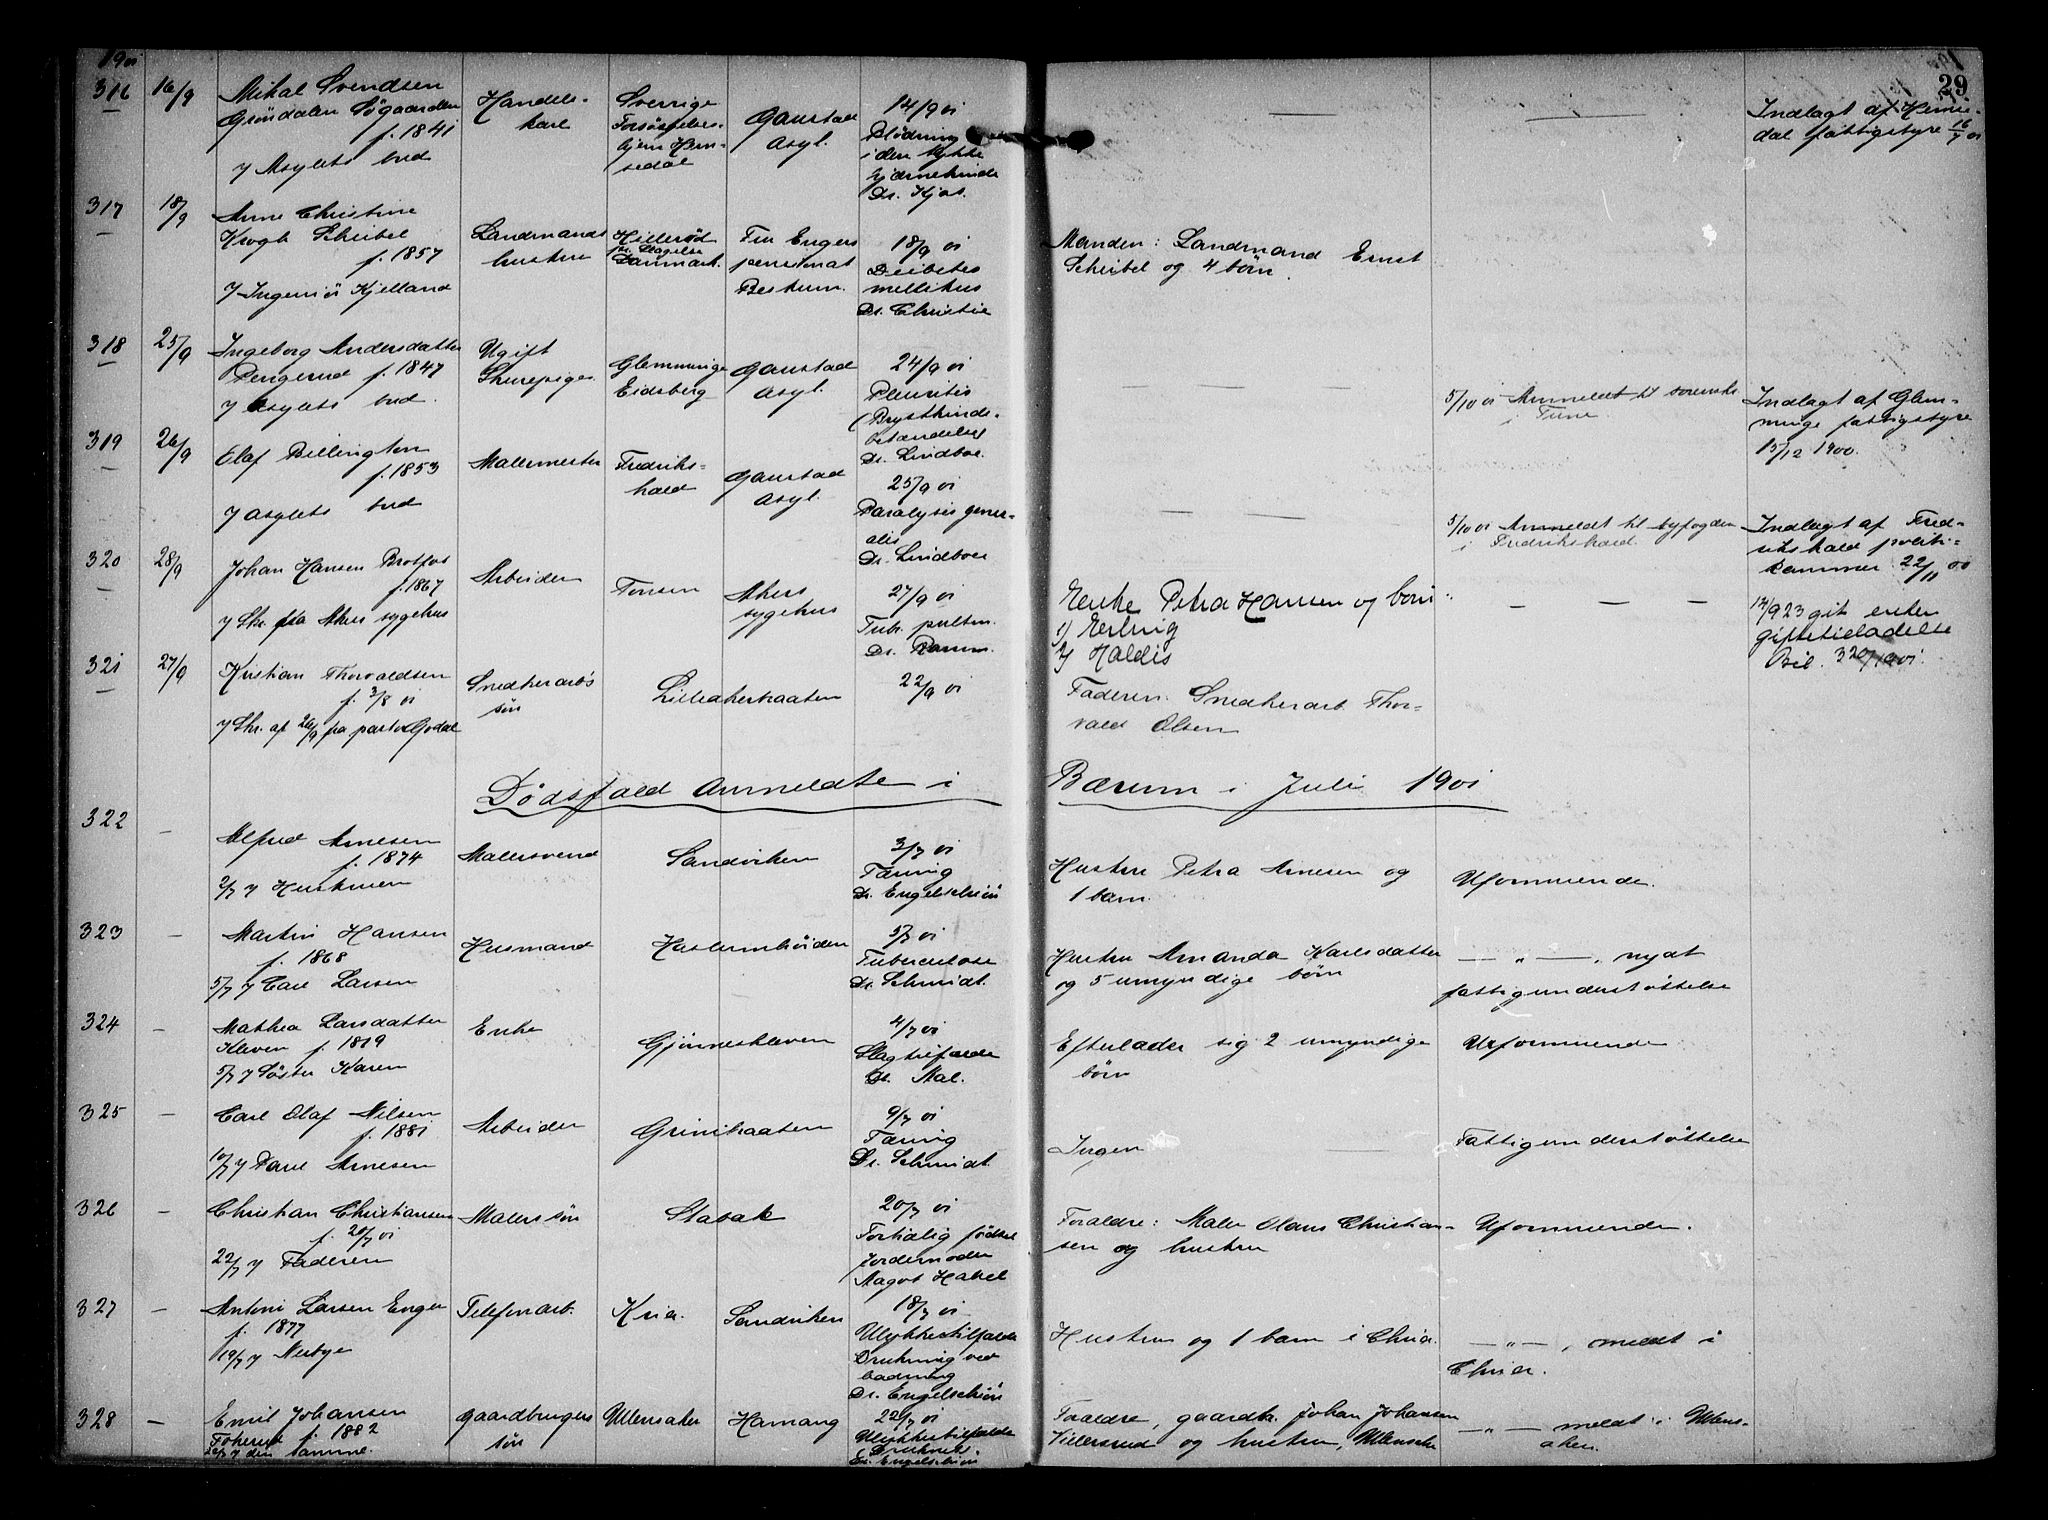 1901
29
316
16/9
Mikal Svendsen
Grøndalen Søgaarden
f. 1841
v/ Asylets bud
Handels-
karl
Sverrige
Forsørgelses-
hjem Hem-
sedal
Gaustad
Asyl.
14/9 01
Blødning
i den bløtte
hjernehinde
Dr. Kjos.
Indlagt af Hemse-
dal fattigstyre 16/7 01
317
18/9
Anne Christine
Krogh Scheibel
f. 1857
v/ Ingeniør Kjelland
Landmands
hustru
Hillerød
pr. Slagelse
Danmark.
Fru Engers
pensionat
Bestum.
18/9 01
Deibetes
mellitus
Dr. Christie
Manden: Landmand Ernst
Scheibel og 4 børn.
318
25/9
Ingeborg Andersdatter
Pengerud f. 1847
v/ Asylets bud.
Ugift
Tjenepige
Glemminge
Eidsberg
Gaustad
Asyl.
24/9 01
Pleuritis
(Brysthinde-
betændelse)
Dr. Lindboe.
5/10 01 Anmeldt til sorenskr.
i Tune.
Indlagt af Glem-
minge fattigstyre
15/12 1900.
319
26/9
Olaf Billington
f. 1853
v/ Asylets bud
Malermester
Fredriks-
hald
Gaustad
Asyl.
25/9 01
Paralysis gener-
alis
Dr. Lindboe
5/10 01 Anmeldt til byfogden
i Fredrikshald.
Indlagt af Fred-
rikshald politi-
kammer 22/11 00
320
28/9
Johan Hansen Brotfos
f. 1867
v/ Skr. fra Akers sygehus
Arbeider
Tonsen
Akers
sygehus
27/9 01
Tub. pulm.
Dr. Ramm.
Enke Petra Hansen og børn:
1) Erling
2) Haldis
12/9 23 git enken
giftetilladelse
Bil. 320/1901.
321
27/9
Kristian Thorvaldsen
f. 3/8 01
v/ Skr. af 26/9 fra pastor Gjødal
Snedkerarb's
søn
Lilleakerkaaten
22/9 01
Faderen: Snedkerarb. Thor-
vald Olsen
Dødsfald anmeldte i Bærum i Juli 1901
322
Alfred Arnesen
f. 1874
2/7 v/ Hustruen
Malersvend
Sandviken
3/7 01
Tæring
Dr. Engelschiøn
Hustru Petra Arnesen og
1 barn.
Uformuende.
323
Martin Hansen
f. 1868
5/7 v/ Carl Larsen
Husmand
Haslumhøiden
3/7 01
Tuberculose
Dr. Schmidt.
Hustru Amanda Karlsdatter
og 5 umyndige børn
— „ —, nydt
fattigunderstøttelse
324
Mathea Larsdatter
Kleven f. 1819
5/7 v/ Søster Karen
Enke
Gjønneskleven
4/7 01
Slagtilfælde
Dr. Mal.
Efterlader sig 2 umyndige
børn
Uformuende
325
Carl Olaf Nilsen
f. 1881
10/7 v/ Paul Arnesen
Arbeider
Grinikaaten
9/7 01
Tæring
Dr. Schmidt.
Ingen
Fattigunderstøttelse
326
Christian Christiansen
f. 20/7 01
22/7 v/ Faderen
Malers søn
Stabæk
20/7 01
Fortidlig fødsel
Jordemoder
Aagot Hakel
Forældre: Maler Olaus Christian-
sen og hustru
Uformuende.
327
Antoni Larsen Enger
f. 1877
19/7 v/ Nerbye
Telefonarb.
Kria.
Sandviken
18/7 01
Ulykkestilfælde
Drukning ved
badning
Dr. Engelschiøn
Hustru og 1 barn i Chria.
— „ —, meldt i
Chria.
328
Emil Johansen
f. 1882
v/ den samme.
Gaardbrugers
søn
Ullensaker
Hamang
22/7 01
Ulykkestilfælde
Drukning
Dr. Engelschiøn
Forældre, gaardbr. Johan Johansen
og hustru, Ullensaker
— „ — meldt i Ullens-
aker.